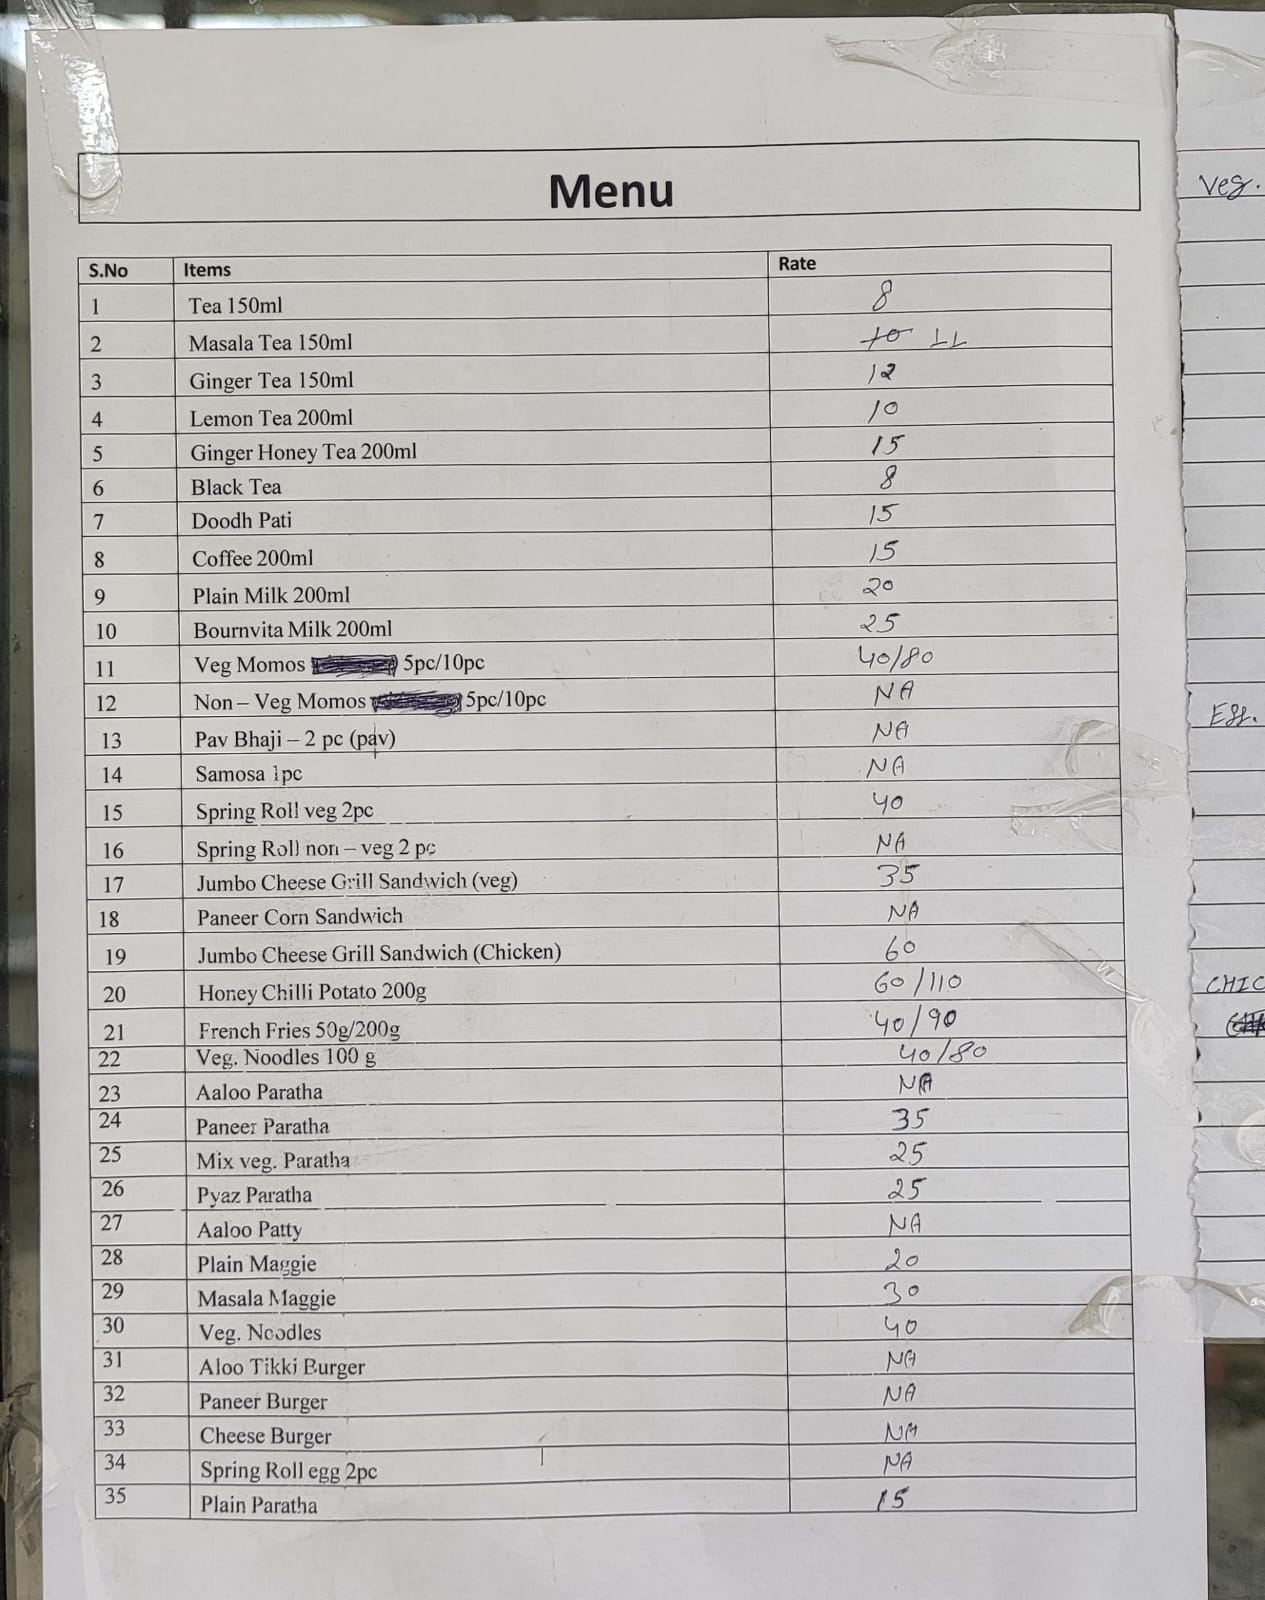 Menu
S.No Items Rate
1 Tea 150ml 8
2 Masala Tea 150ml 10 11
3 Ginger Tea 150ml 12
4 Lemon Tea 200ml 10
5 Ginger Honey Tea 200ml 15
6 Black Tea 8
7 Doodh Pati 15
8 Coffee 200ml 15
9 Plain Milk 200ml 20
10 Bournvita Milk 200ml 25
11 Veg Momos 5pc/10pc 40/80
12 Non – Veg Momos 5pc/10pc NA
13 Pav Bhaji – 2 pc (pav) NA
14 Samosa 1pc NA
15 Spring Roll veg 2pc 40
16 Spring Roll non – veg 2 pc NA
17 Jumbo Cheese Grill Sandwich (veg) 35
18 Paneer Corn Sandwich NA
19 Jumbo Cheese Grill Sandwich (Chicken) 60
20 Honey Chilli Potato 200g 60/110
21 French Fries 50g/200g 40/90
22 Veg. Noodles 100 g 40/80
23 Aaloo Paratha NA
24 Paneer Paratha 35
25 Mix veg. Paratha 25
26 Pyaz Paratha 25
27 Aaloo Patty NA
28 Plain Maggie 20
29 Masala Maggie 30
30 Veg. Noodles 40
31 Aloo Tikki Burger NA
32 Paneer Burger NA
33 Cheese Burger NA
34 Spring Roll egg 2pc NA
35 Plain Paratha 15
Veg.
Egg.
CHIC